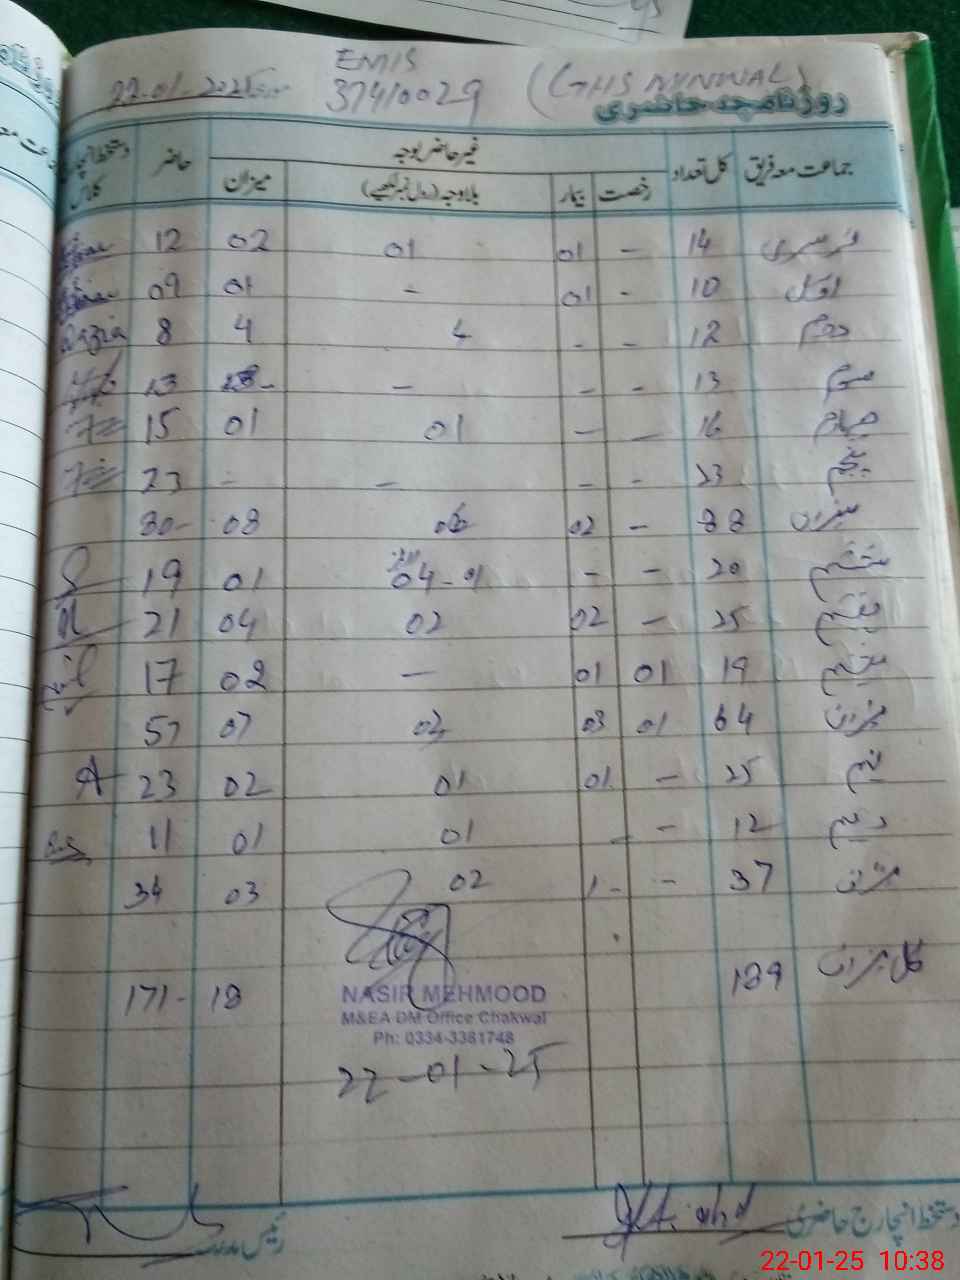 22-01-2025 مورخہ EMIS
37410029 (GHS MINWAL)
روزنامچہ حاضری
جماعت معہ فریق کل تعداد غیر حاضر بوجہ حاضر دستخط انچارج کلاس
رخصت بیمار بلاوجہ (رول نمبر لکھیے) میزان
نرسری 14 - 01 01 02 12
اول 10 - 01 - 01 09
دوم 12 - - 4 4 8 Razia
سوم 13 - - - - 13
چہارم 16 - - 01 01 15
پنجم 23 - - - - 23
میزان 88 - 02 06 08 80-
ششم 20 - - 04-01 01 19
ہفتم 25 - 02 02 04 21
ہشتم 19 01 01 - 02 17
میزان 64 01 03 03 07 57
نہم 25 - 01 01 02 23
دہم 12 - - 01 01 11
میزان 37 - 1- 02 03 34
کل میزان 189 18 171-
NASIR MEHMOOD
M&EA DM Office Chakwal
Ph: 0334-3381748
22-01-25
دستخط انچارج حاضری
رئیس مدرسہ
22-01-25 10:38